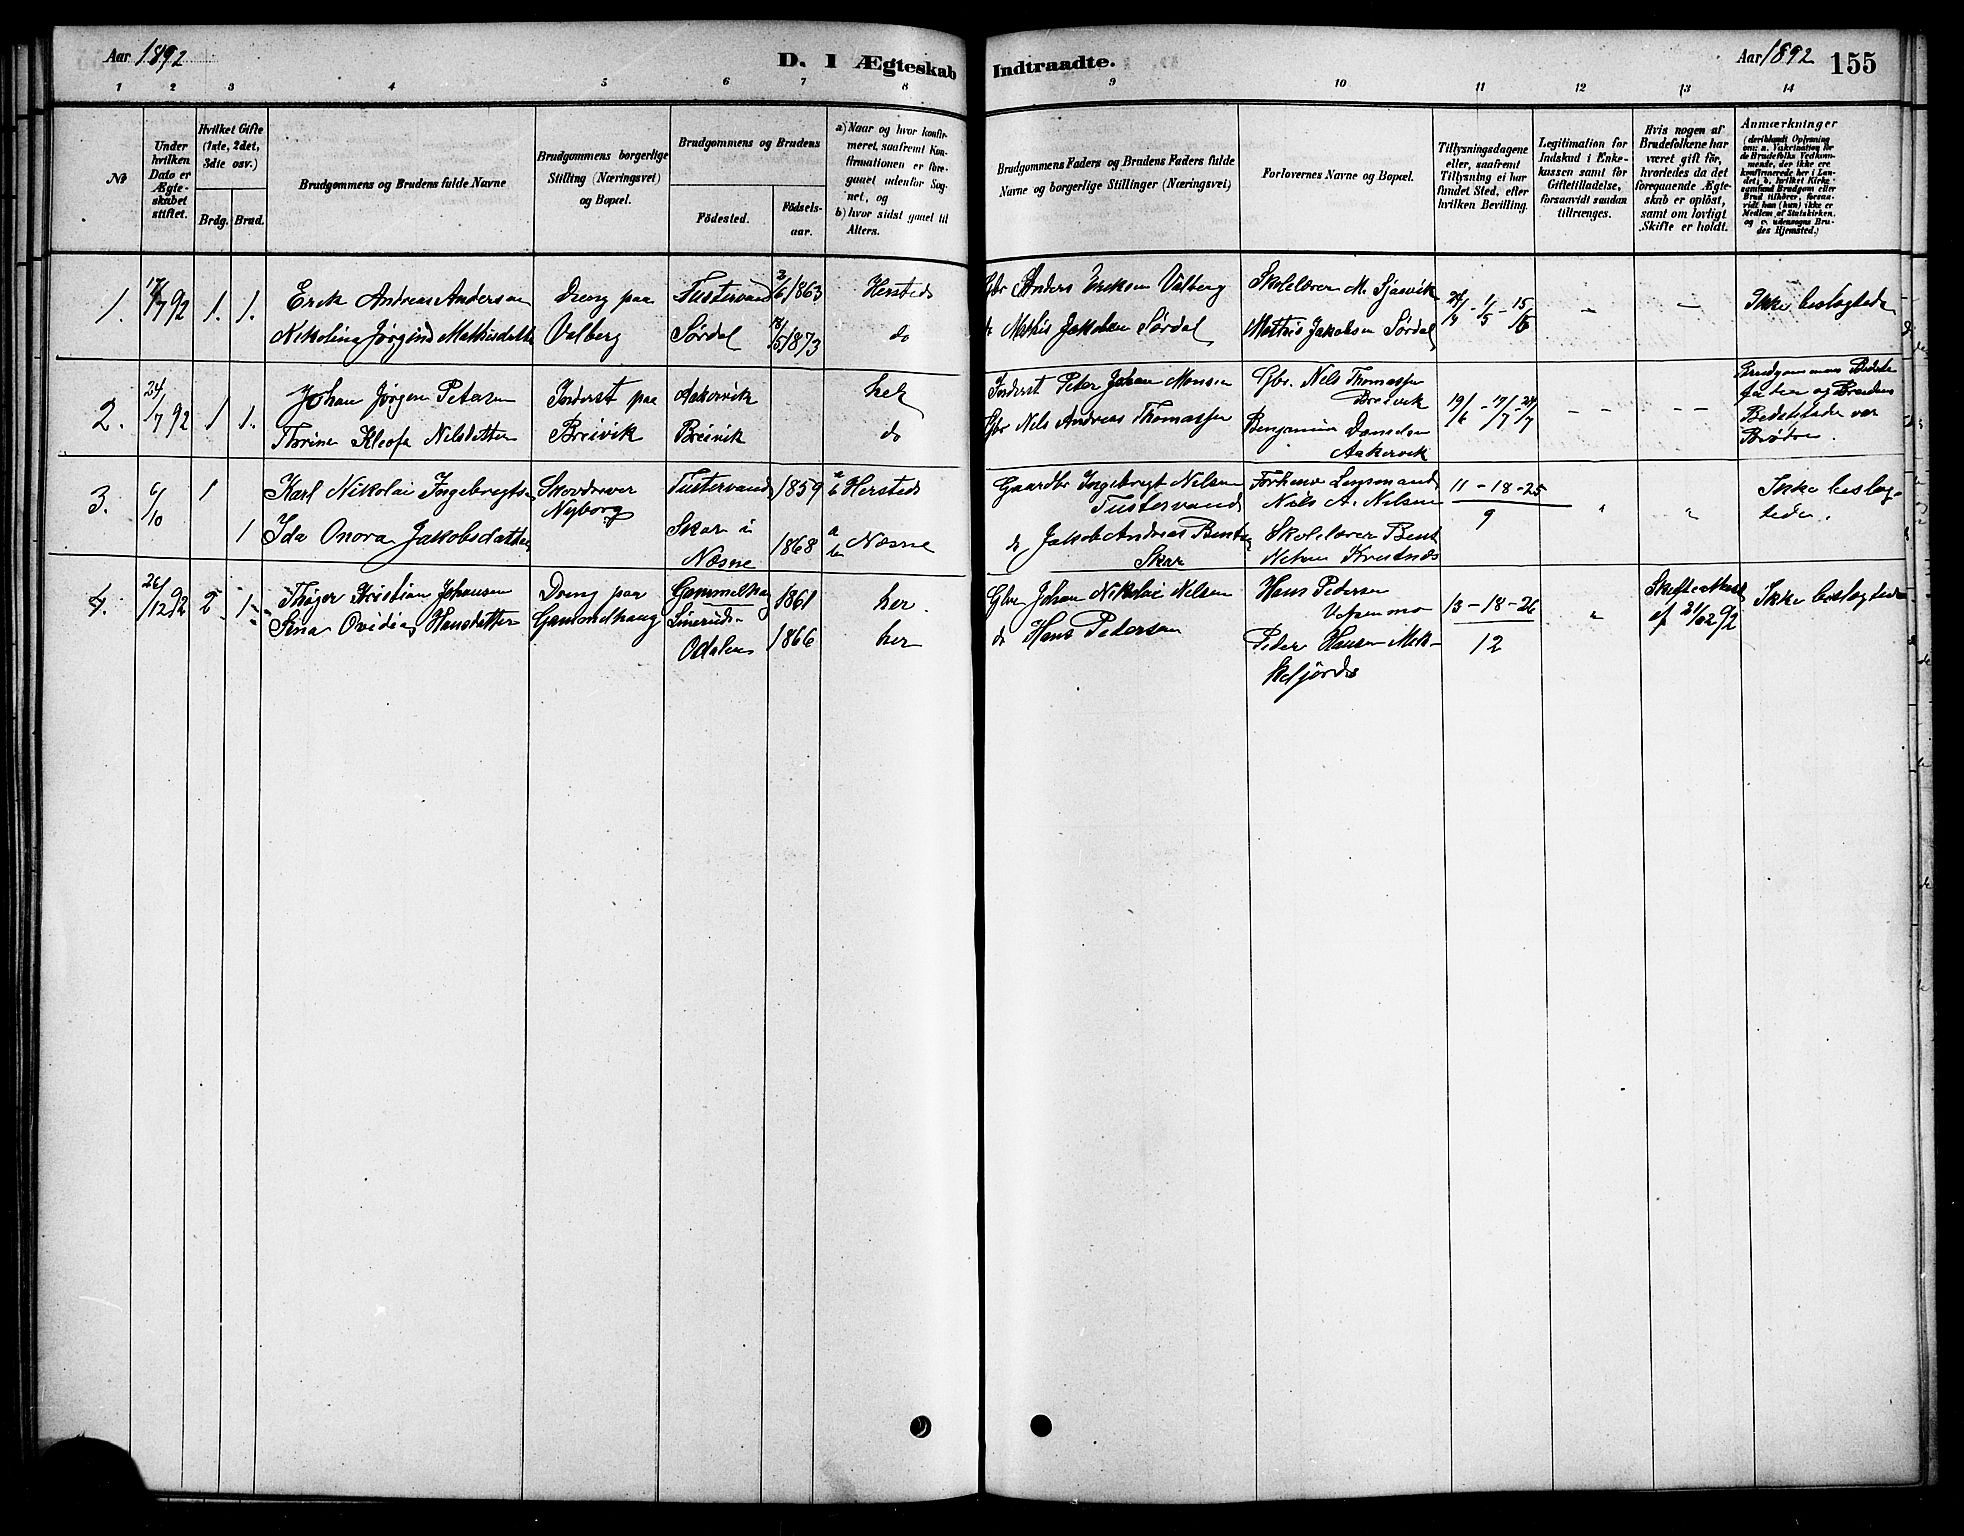 Aar 1892
D. I Ægteskab
Indtraadte.
Aar 1892
155
1 2 3 4 5 6 7 8
9 10 11 12 13 14
No
Under hvilken Dato er Ægteskabet stiftet.
Hvilket Gifte (1ste, 2det, 3die osv.)
Brdg. Brud.
Brudgommens og Brudens fulde Navne
Brudgommens borgerlige Stilling (Næringsvei) og Bopæl.
Brudgommens og Brudens
Fødested.
Fødselsaar.
a) Naar og hvor konfirmeret, saafremt Konfirmationen er foregaaet udenfor Sognet, og
b) hvor sidst gaaet til Alters.
Brudgommens Faders og Brudens Faders fulde Navne og borgerlige Stillinger (Næringsvei)
Forlovernes Navne og Bopæl.
Tillysningsdagene eller, saafremt Tillysning ei har fundet Sted, efter hvilken Bevilling.
Legitimation for Indskud i Enkekassen samt for Giftetilladelse, forsaavidt saadan tiltrænges.
Hvis nogen af Brudefolkene har været gift før, hvorledes da det foregaaende Ægteskab er opløst, samt om lovligt Skifte er holdt.
Anmærkninger
(deriblandt Oplysning om: a. Vakcination for de Brudefolks Vedkommende, der ikke ere konfirmerede her i Landet, b. hvilket Kirkesamfund Brudgom eller Brud tilhører, forsaavidt han (hun) ikke er Medlem af Statskirken, og c. udensogns Brudes Hjemsted.)
1. 17/7 92 1. 1. Erik Andreas Andersen
Nikolina Jørgine Mathisdatter
Dreng paa
Valberg
Tustervand
Sørdal
2/6 1863
18/5 1873
Hersteds
do
Gbr Anders Eriksen Valberg
do Mathis Jakobsen Sørdal
Skolelærer M. Sjøsvik
Mathis Jakobsen Sørdal
24/3 - 1/5 - 15/6
- -
Ikke beslægtede
2. 24/7 92 1 1. Johan Jørgen Petersen
Thrine Kleofa Nilsdatter
Inderst paa
Breivik
Aakervik
Breivik
her
do
Inderst Peter Johan Monsen
Gbr Nils Andreas Thomassen
Gbr. Nils Thomassen
Breivik
Benjamin Danielsen
Aakervik
19/6 - 17/7 - 24/7
- - - -
Brudgommens Bedste
fader og Brudens
Bedstefader var
Brødre.
3. 6/10 1
1
Karl Nikolai Ingebrigts.
Ida Onora Jakobsdatter
Skovdriver
Nyborg
Tustervand
Skar i
Næsne
1859
1868
a b Hersteds
a b Næsne
Gaardbr Ingebrigt Nilsen
Tustervand
do Jakob Andreas Bents
Skar
Forhenv Lensmand
Nils A. Nilsen
Skolelærer Bent
11-18-25
9
" "
Ikke beslæg-
tede.
4. 26/12 92 2 1. Thøger Kristian Johansen
Sina Ovidia Hansdatter
Dreng paa
Gammelhaug
Gammelhaug
Odalen
1861
1866
her.
her
Gbr Johan Nikolai Nilsen
do Hans Petersen
Hans Pedersen
Vefsenmo
Peder Hansen
13-18-26
12
"
af 21/12 92
Ikke beslægtede